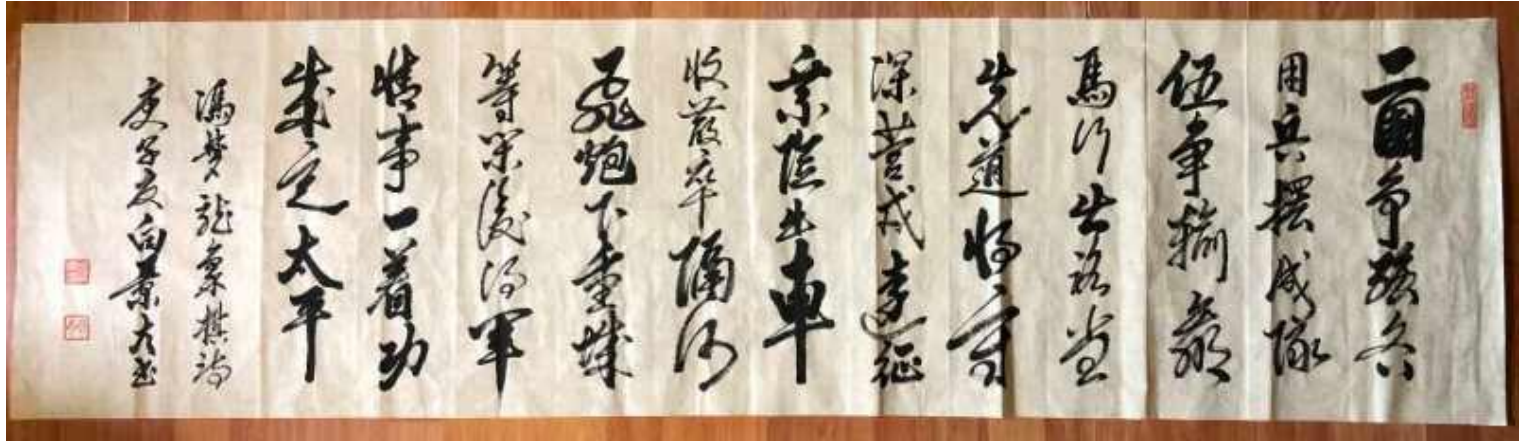 二國爭强各
用兵擺成隊
伍定輸贏
馬行出路當
先道將守
深營戒遠征
乘險出車
收散卒隔河
飛炮下重城
等閑得軍
情事一着功
成定太平
馮夢龍象棋詩
庚子夏向景書